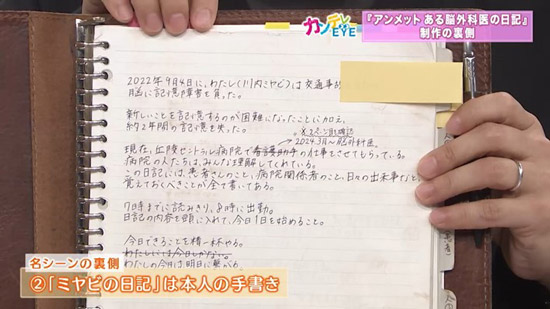 カンテレEYE
『アンメット ある脳外科医の日記』
制作の裏側
2022年9月4日に、わたし(川内ミヤビ)は交通事故
脳に記憶障害を負った。
新しいことを記憶するのが困難になったことに加え、
約2年間の記憶を失った。
※3ページ目確認
2024.3月~脳外科医。
現在、丘陵セントラル病院で看護助手の仕事をさせてもらっている。
病院の人たちは、みんな理解してくれている。
この日記には、患者さんのこと、病院関係者のこと、日々の出来事など
覚えておくべきことが全て書いてある。
7時までに読みきり、8時に出勤。
日記の内容を頭に入れて、今日1日を始めること。
今日できることを精一杯やる。
わたしには今日しかない。
わたしの今日は明日に繋がる
名シーンの裏側
②「ミヤビの日記」は本人の手書き